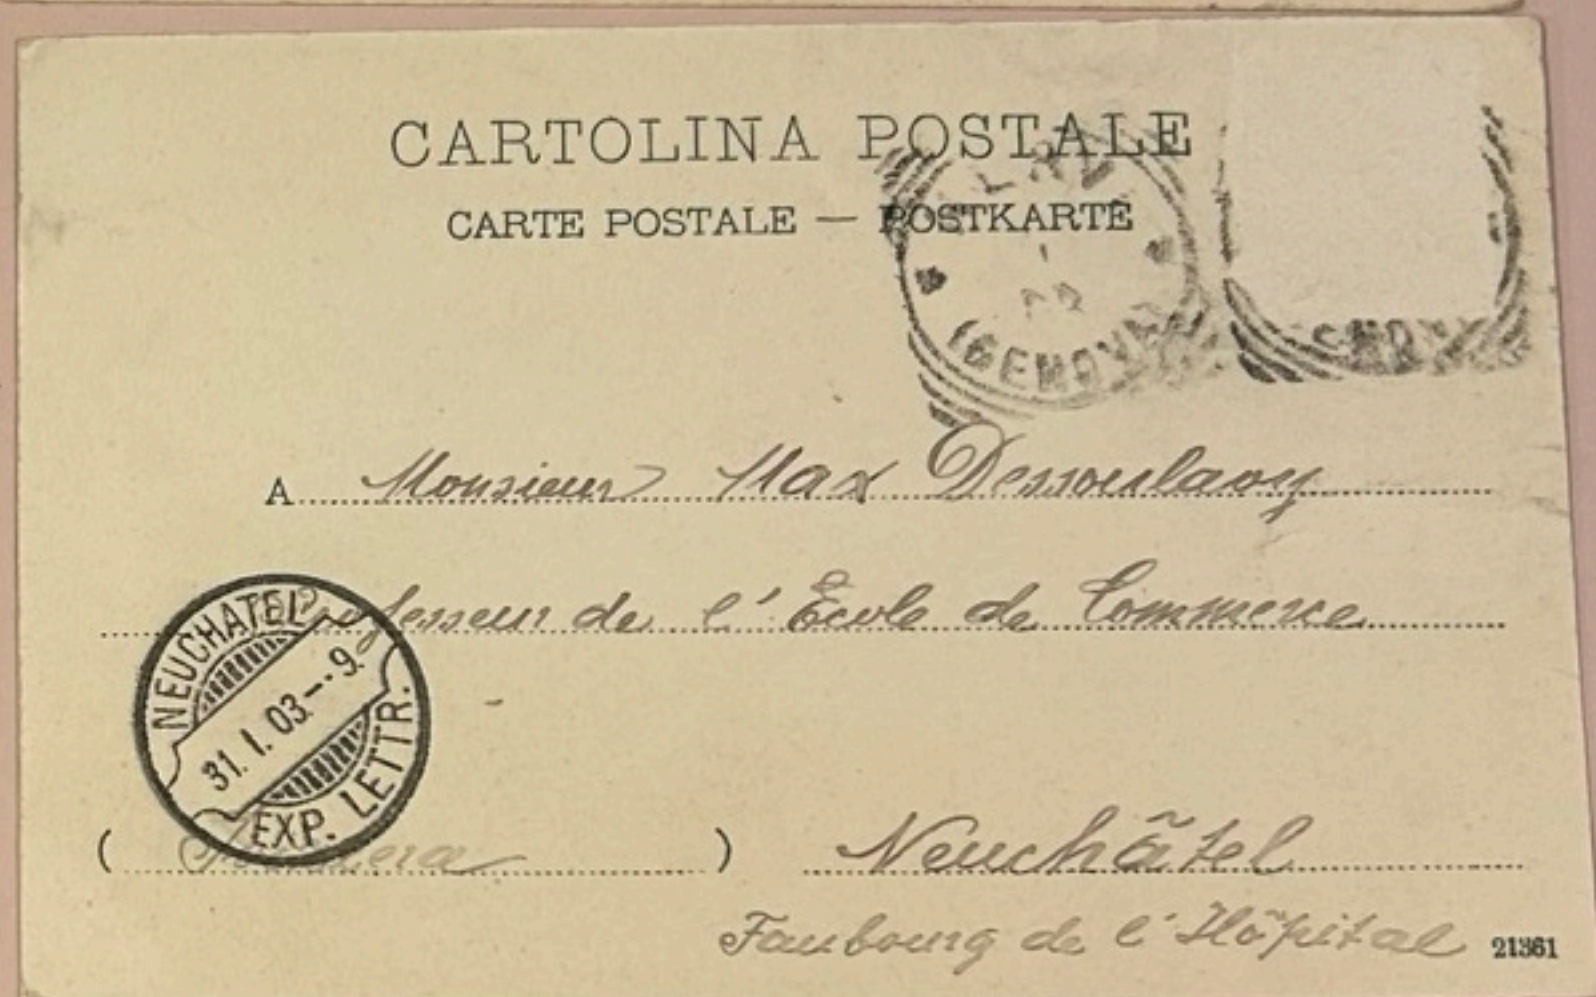 CARTOLINA POSTALE
CARTE POSTALE — POSTKARTE
(GENOVA)
A Monsieur Max Dessoulavy
Professeur de l'École de Commerce
NEUCHATEL
31. I. 03.–·9.
EXP. LETTR.
( Svizzera ) Neuchâtel
Faubourg de l'Hôpital
21361